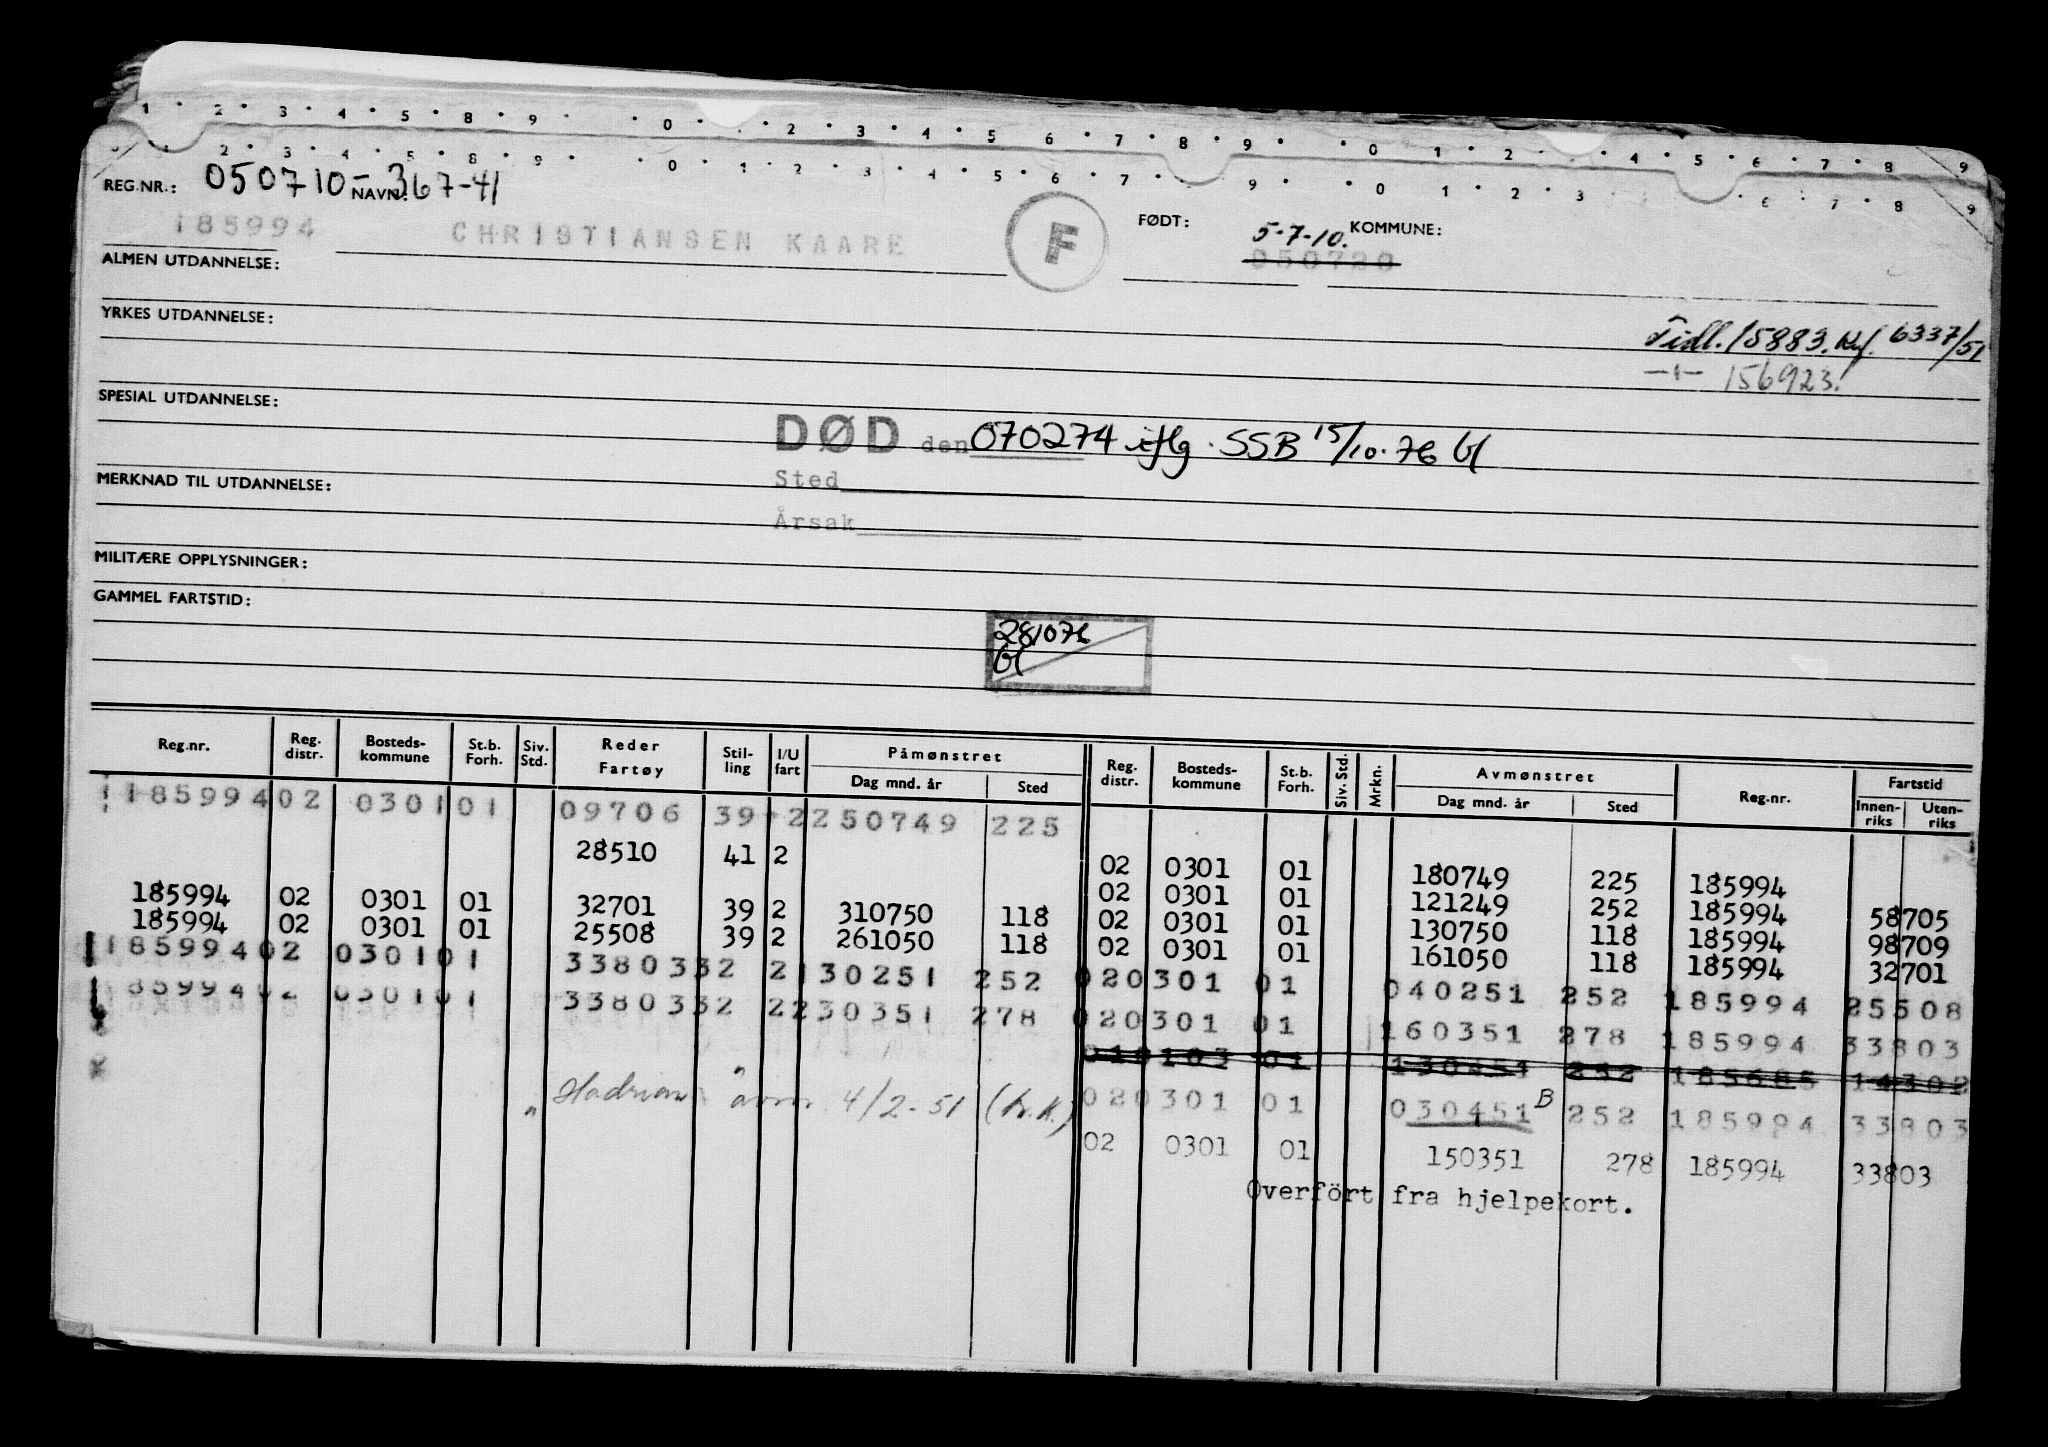 1 · 2 · 3 · 4 · 5 · 8 · 9 · 0 · · 2 · 3 · 4 · 5 6 · 7 · 8 · 9 · 0 · 1 · 2 · · 4 · 5 · 6 · 7 · 8 9
2 · 3 · 4 · 5 · 8 · 9 · 0 · 1 · 2 · 3 · 4 · 5 · 6 · 7 · 9 · 0 · 1 · 2 · 3 · 6 · 7 · 8 9
REG.NR.: 050710-367-41
NAVN:
185994 CHRISTIANSEN KAARE F FØDT: 5-7-10. KOMMUNE:
050720
ALMEN UTDANNELSE:
YRKES UTDANNELSE:
Tidl. 15883. Kf. 6337/51
-"- 156923.
SPESIAL UTDANNELSE:
DØD den 070274 iflg. SSB 15/10.76
Sted
MERKNAD TIL UTDANNELSE:
Årsak
MILITÆRE OPPLYSNINGER:
GAMMEL FARTSTID:
281076
Reg.nr. Reg. distr. Bosteds-kommune St.b. Forh. Siv. Std. Reder Fartøy Stil-ling I/U fart Påmønstret Dag mnd. år Sted Reg. distr. Bosteds-kommune St.b. Forh. Siv. Std. Mrkn. Avmønstret Dag mnd. år Sted Reg.nr. Fartstid Innen-riks Uten-riks
185994 02 0301 01 09706 39 2 250749 225
28510 41 2 02 0301 01 180749 225 185994 58705
185994 02 0301 01 32701 39 2 310750 118 02 0301 01 121249 252 185994 98709
185994 02 0301 01 25508 39 2 261050 118 02 0301 01 130750 118 185994 32701
02 0301 01 161050 118 185994
185994 02 0301 01 33803 32 2 130251 252 02 0301 01 040251 252 185994 25508
85994 02 0301 01 33803 32 2 230351 278 02 0301 01 160351 278 185994 33803
01 0103 01 130451 252 185685 14302
" Hadrian avm. 4/2-51 (h.k.) 02 0301 01 030451 B 252 185994 33803
02 0301 01 150351 278 185994 33803
Overført fra hjelpekort.